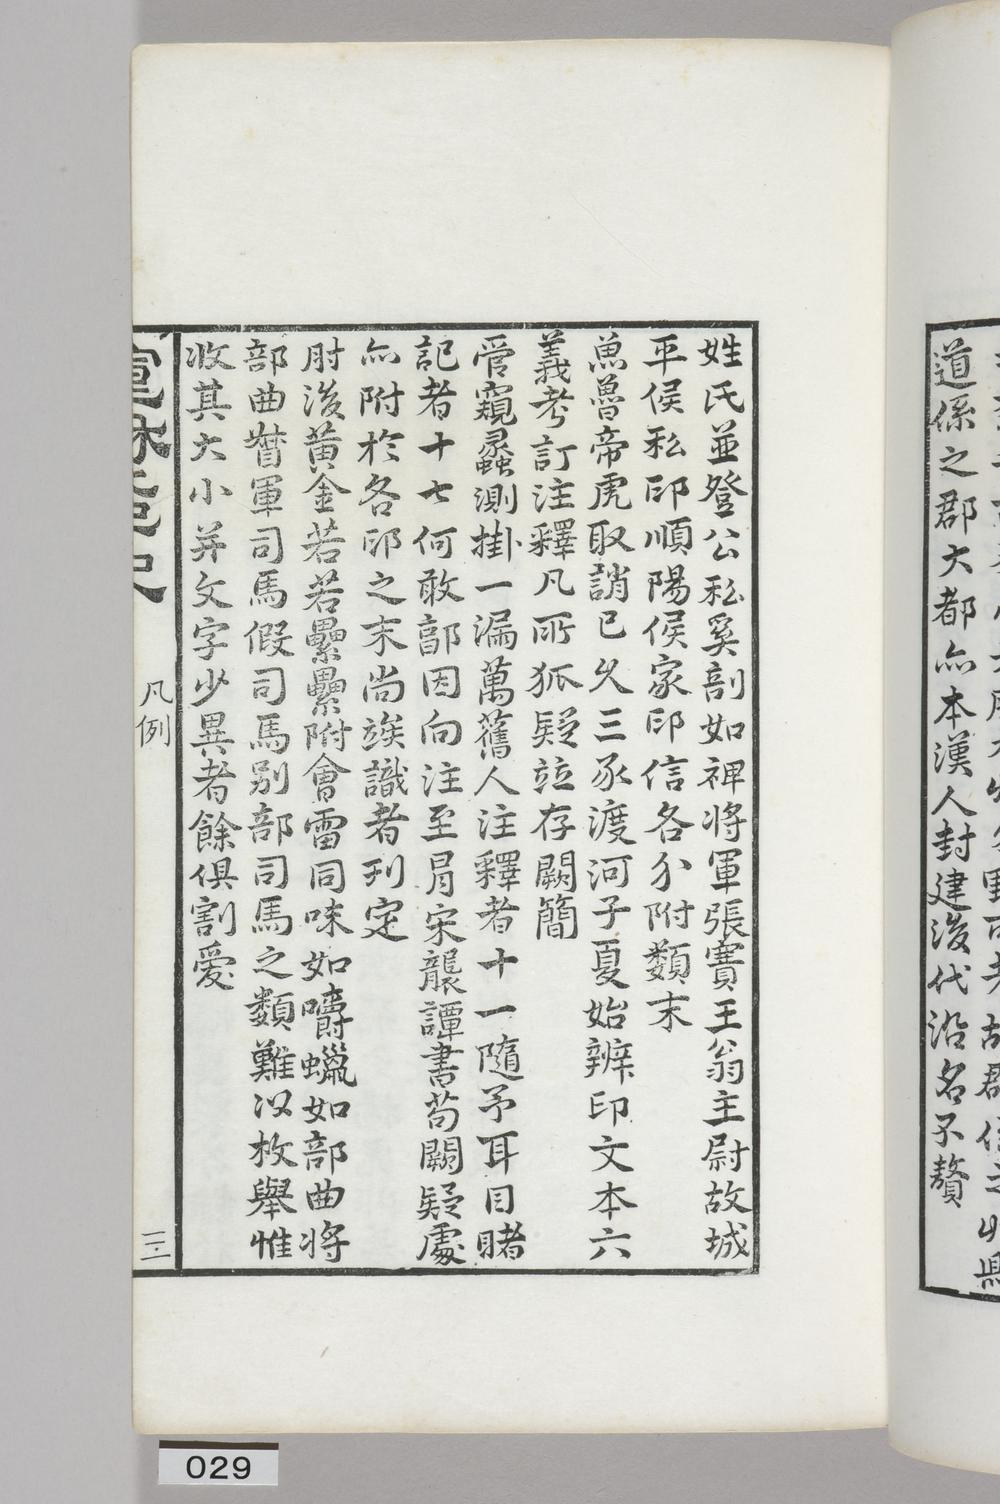 道係之郡大都亦本漢人封建後代沿名不贅
姓氏並登公私奚剖如裨將軍張賽王翁主尉故城
平侯私印順陽侯家印信各分附類末
魚魯帝虎取誚已久三豕渡河子夏始辨印文本六
義考訂注釋凡所狐疑竝存闕簡
管窺蠡測掛一漏萬舊人注釋者十一隨予耳目睹
記者十七何敢鄙因向注至屑宋襲譚書苟闕疑處
亦附於各印之末尚竢識者刊定
肘後黃金若若纍纍附會雷同味如嚼蠟如部曲將
部曲督軍司馬假司馬別部司馬之類難以枚舉惟
收其大小并文字少異者餘俱割愛
凡例
三
029